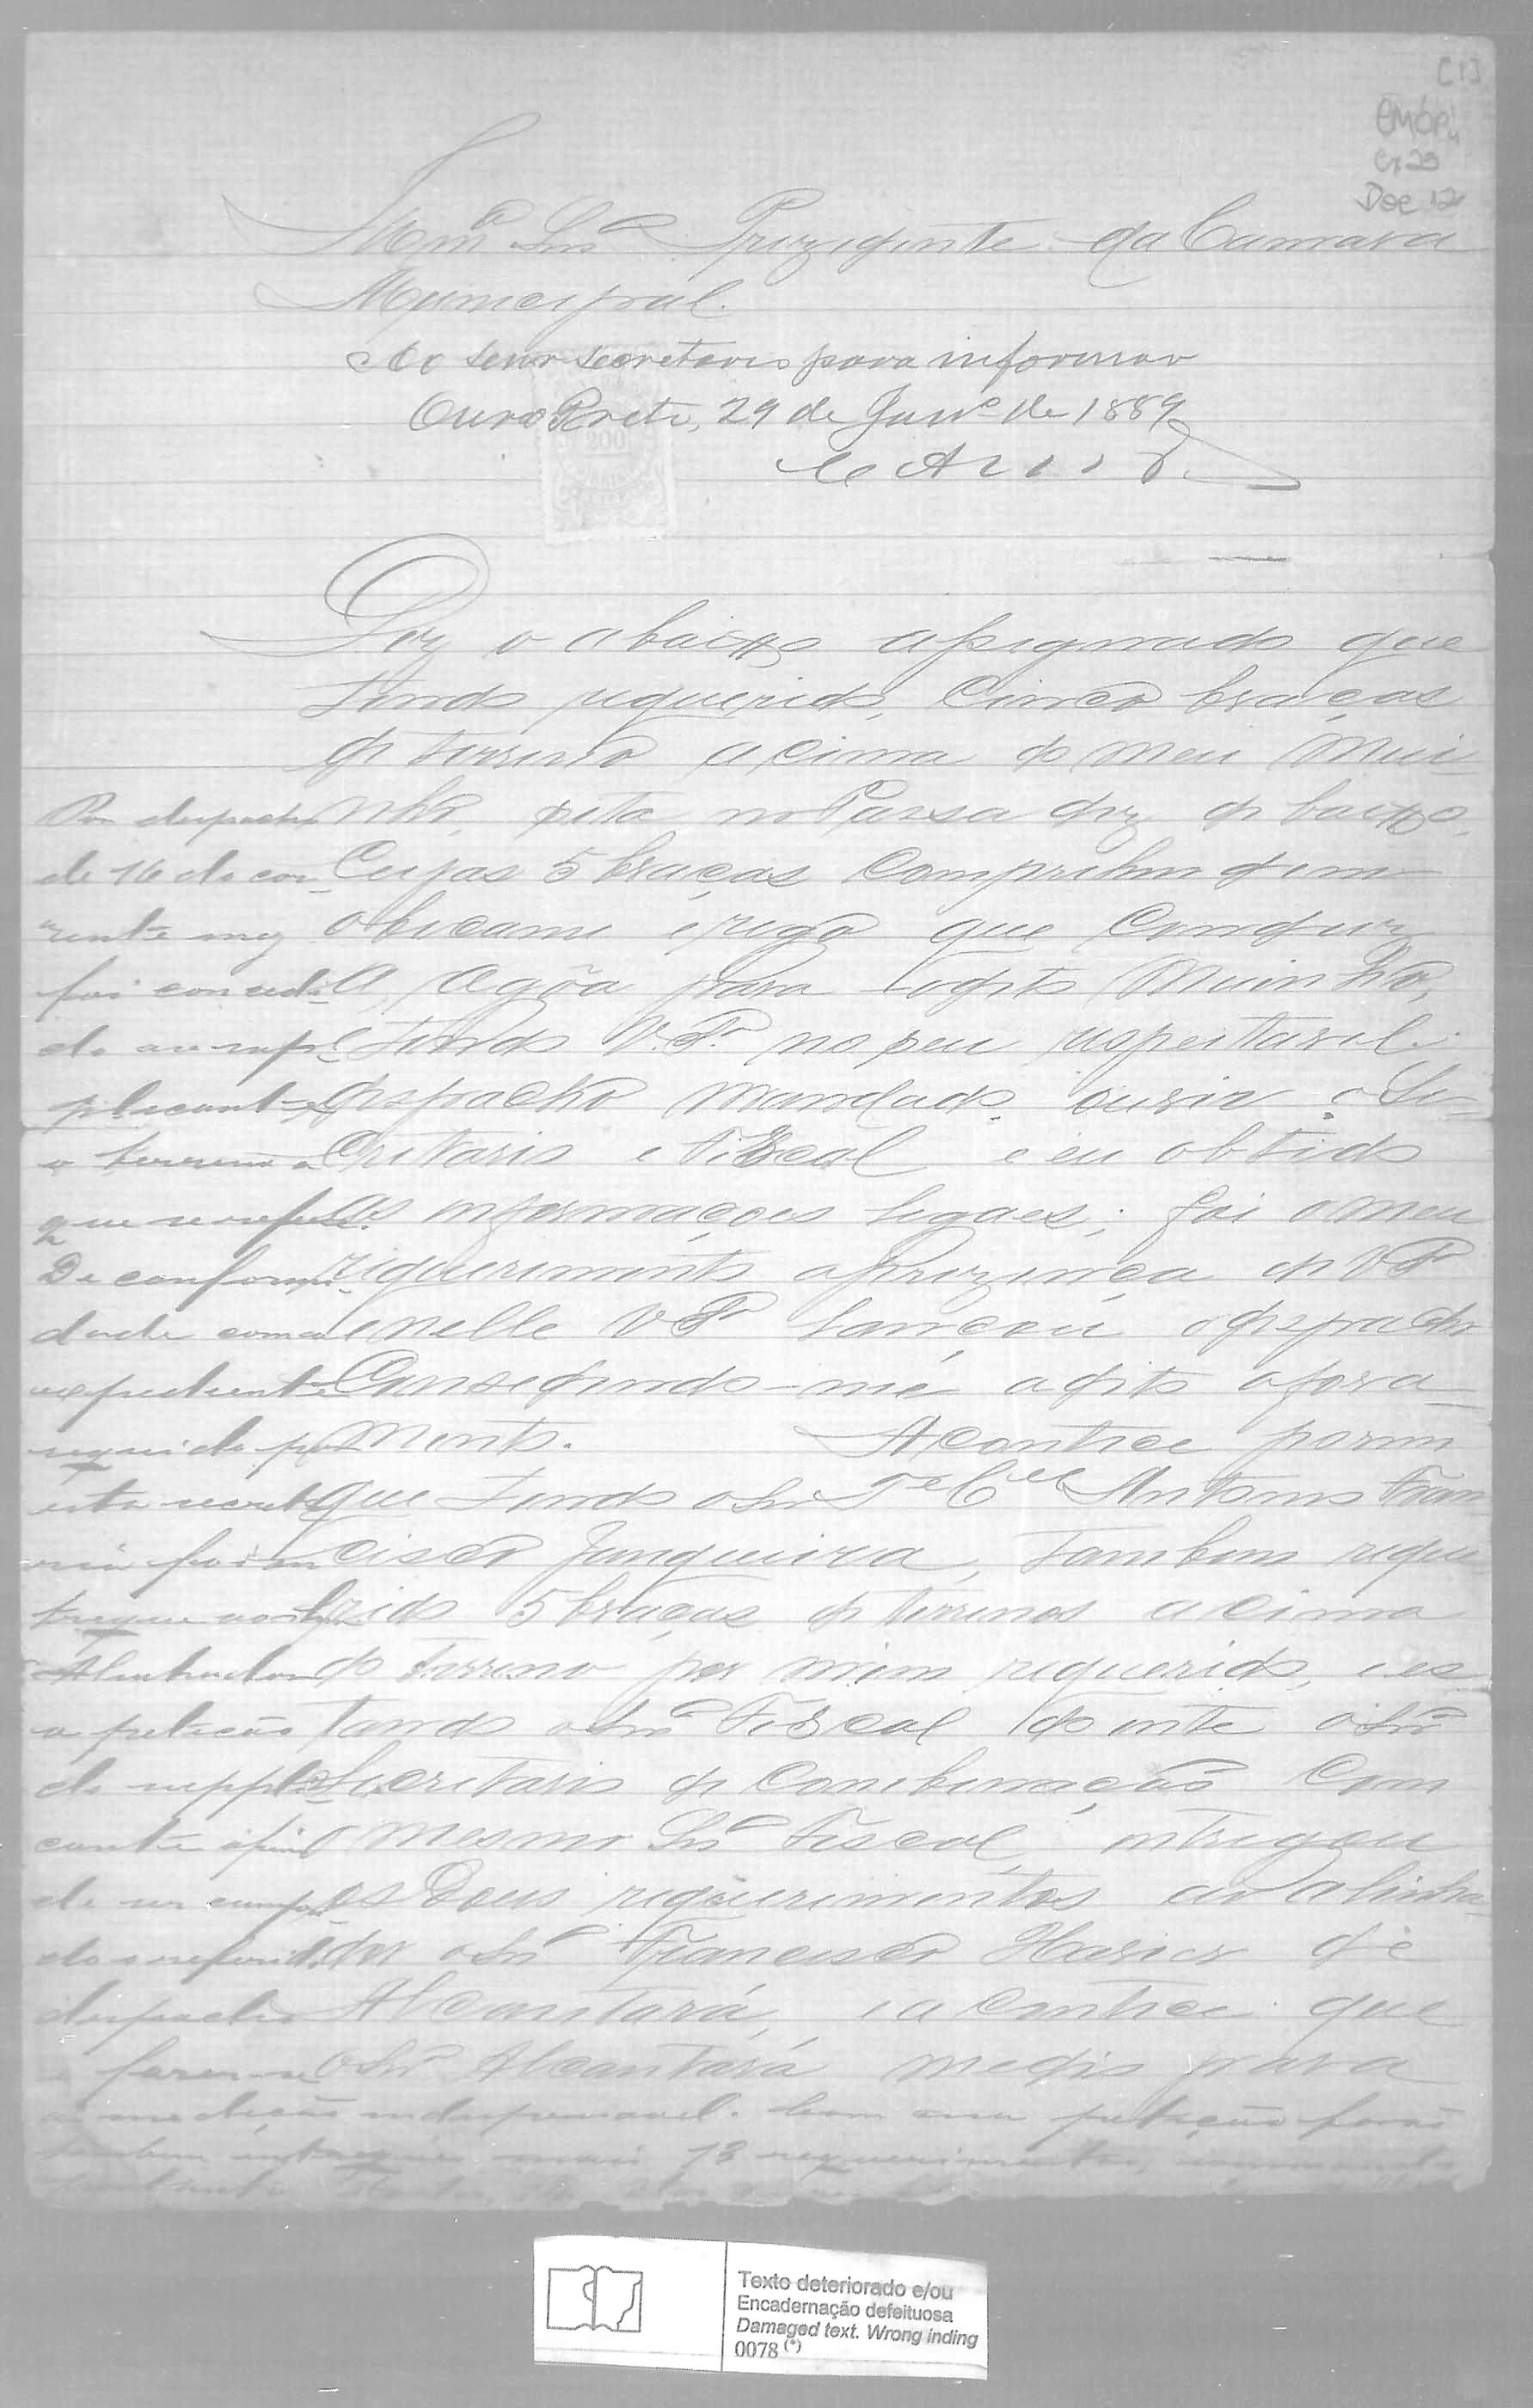 [1]
CMOP
Cx 29
Doc 12
Illmº Snrº Prezidente da Camara
Municipal.
Ao senr secretario para informar
Ouro Preto, 29 de Janrº de 1889
Diz o abaixo assignado que
tendo riquerido, Cinco braças
de terreno acima do meu Mui-
nho, sita no Passa dez de baixo,
Cujas 5 braças Comprihendem
obicame e rego que Conduz
a, agôa para todito Muinho,
tendo V.Sª no seu respeitavel
despacho Mandado ouvir o Se-
Critario e Fiscal e eu obtido
as informações legaes; foi o meu
riquerimento aprezença de VSª
e nelle VSª lançou o despacho
Consedendo-me adito afora-
mento. Acontece porem
que tendo o Snr Te Cel Antonio Fran-
cisco Junqueira, tambem reque-
rido 5 braças de terrenos acima
do terreno por mim riquerido, ees
tando o Snrº Fiscal doente o Snrº
Secritario de Combinação Com
o mesmo Snrº Fiscal, intregou
os Dous riquerimentos ao alinha-
dor o Snrº Francisco Xavier de
Alcantará, e acontece que
o Snrº Alcantará medio para
Por despacho
de 16 do cor-
rente mez
foi concedi-
do ao sup-
plicante
o terreno a
que se refere.
De conformi-
dade com o
expediente
seguido por
esta secreta-
ria foi en-
tregue ao Sr
Alinhador
a petição
do suppli-
cante afim
de ser cumpri-
do o referido
despacho
e fazer-se
a medição indespensavel. Com essa petição forão
tambem entregues mais 13 requerimentos,
Texto deteriorado e/ou
Encadernação defeituosa
Damaged text. Wrong inding
0078 (*)